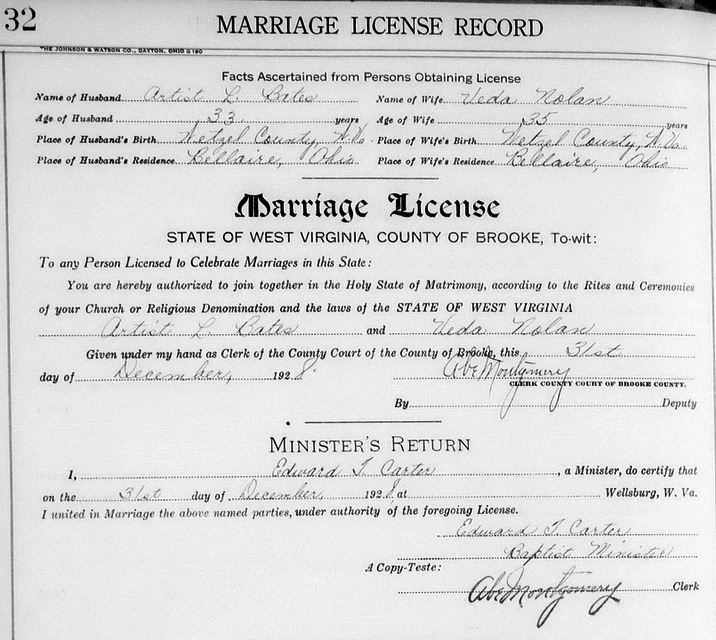 32 MARRIAGE LICENSE RECORD
THE JOHNSON & WATSON CO., DAYTON, OHIO
Facts Ascertained from Persons Obtaining License
Name of Husband Artist L. Bates Name of Wife Veda Nolan
Age of Husband 33 years Age of Wife 35 years
Place of Husband's Birth Wetzel County, W. Va. Place of Wife's Birth Wetzel County, W. Va.
Place of Husband's Residence Bellaire, Ohio Place of Wife's Residence Bellaire, Ohio
Marriage License
STATE OF WEST VIRGINIA, COUNTY OF BROOKE, To-wit:
To any Person Licensed to Celebrate Marriages in this State:
You are hereby authorized to join together in the Holy State of Matrimony, according to the Rites and Ceremonies
of your Church or Religious Denomination and the laws of the STATE OF WEST VIRGINIA
Artist L. Bates and Veda Nolan
Given under my hand as Clerk of the County Court of the County of Brooke, this 31st
day of December, 1928. Abe Montgomery
CLERK COUNTY COURT OF BROOKE COUNTY.
By Deputy
MINISTER'S RETURN
I, Edward T. Carter, a Minister, do certify that
on the 31st day of December, 1928 at Wellsburg, W. Va.
I united in Marriage the above named parties, under authority of the foregoing License.
Edward T. Carter
Baptist Minister
A Copy-Teste:
Abe Montgomery Clerk